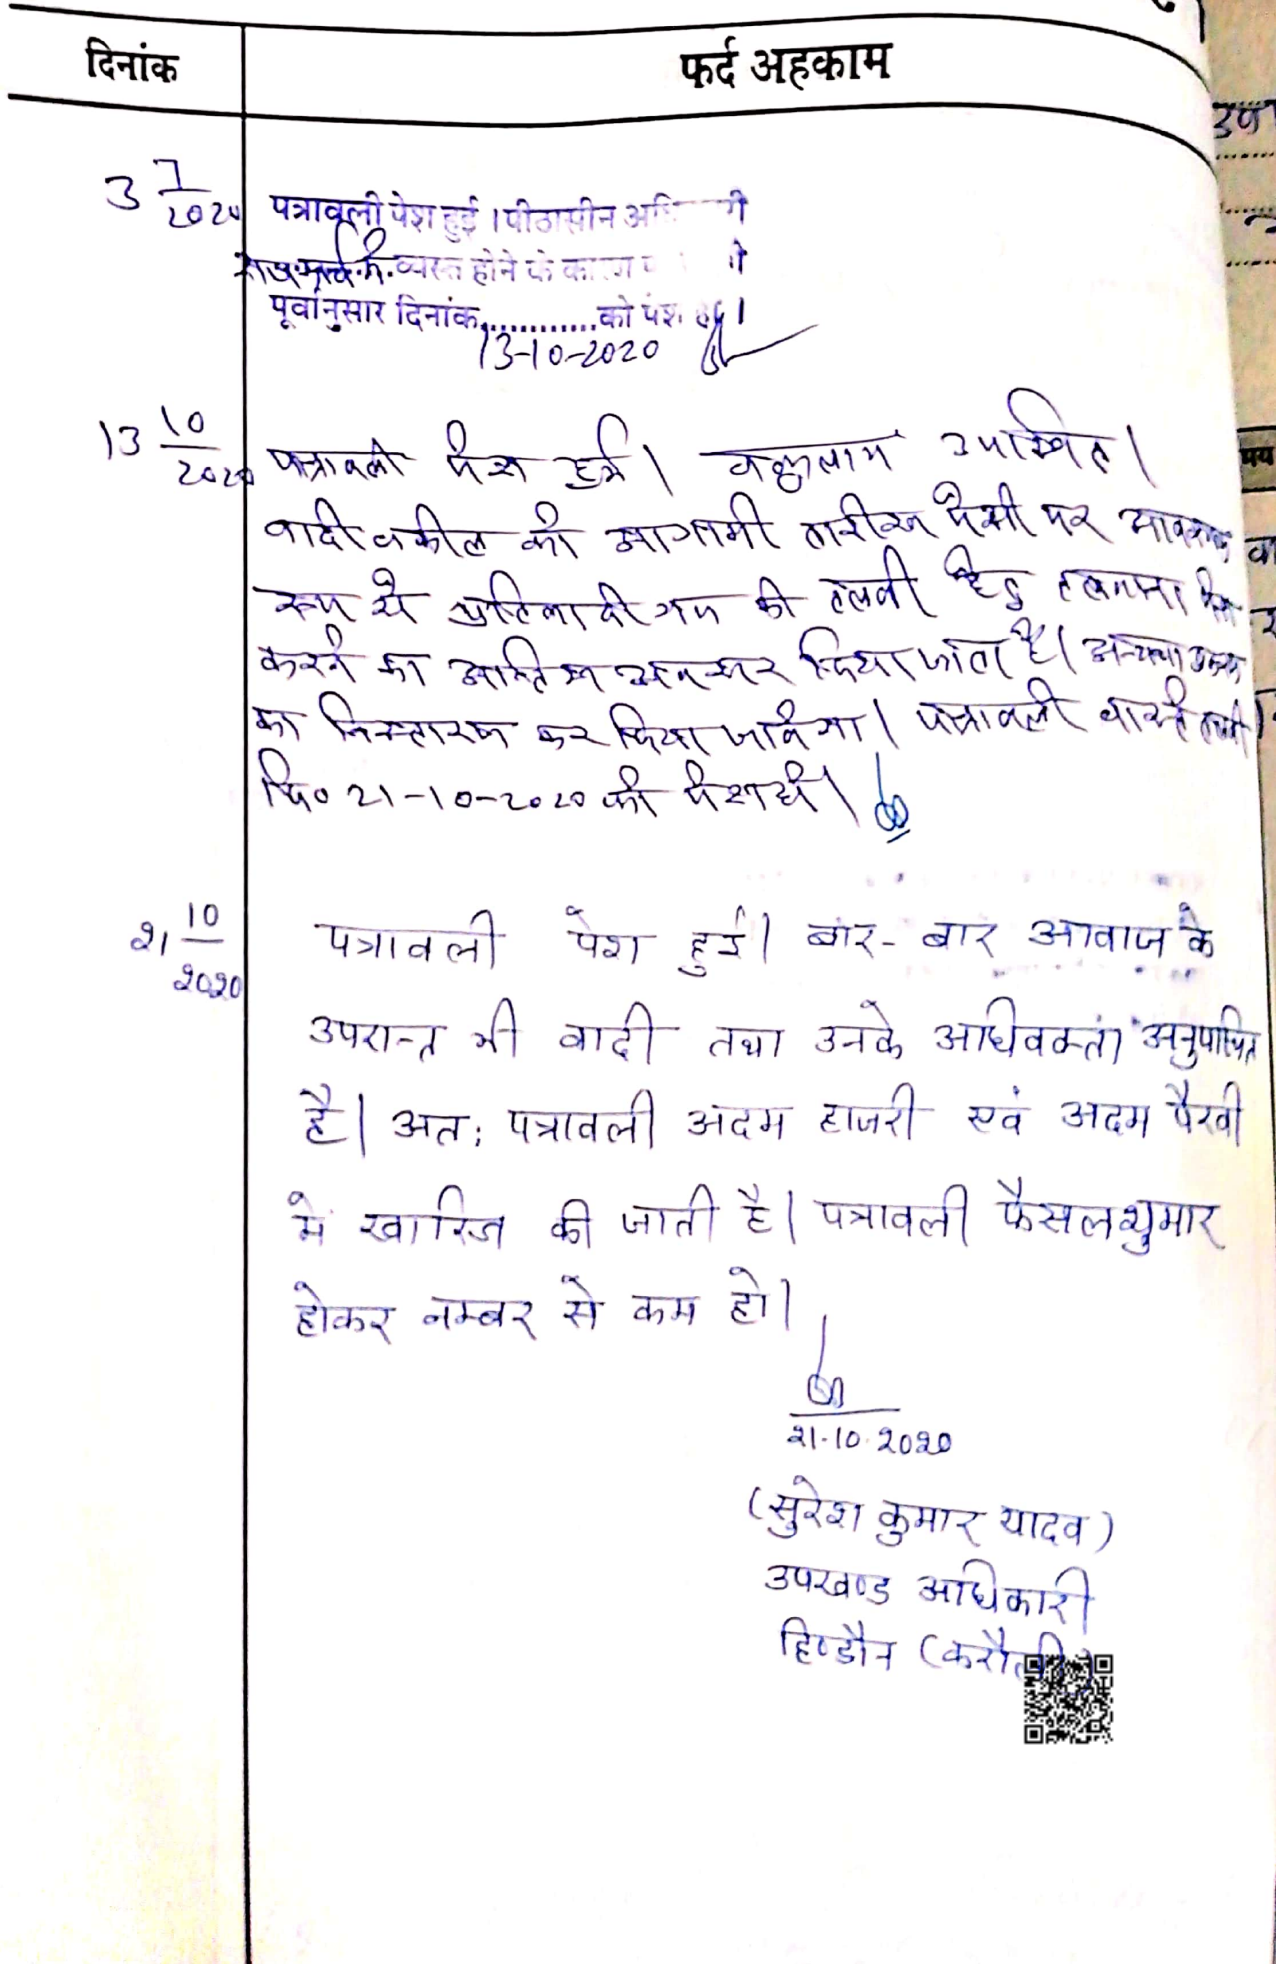 दिनांक
फर्द अहकाम
3 7/2020
पत्रावली पेश हुई । पीठासीन
व्यस्त होने के कारण
पूर्वानुसार दिनांक............को पेश हुई ।
13-10-2020
13 10/2020
पत्रावली पेश हुई। वकुलाय उपस्थित।
वादी वकील को आगामी तारीख पेशी पर आवश्यक
रूप से प्रतिवादीगण की तलवी हेतु तलवाना पेश
करने का अन्तिम अवसर दिया जाता है। अन्यथा
का निस्तारण कर दिया जावेगा। पत्रावली वास्ते तलवी
दि० 21-10-2020 को पेश हो।
21 10/2020
पत्रावली पेश हुई। बार-बार आवाज के
उपरान्त भी वादी तथा उनके अधिवक्ता अनुपस्थित
है। अतः पत्रावली अदम हाजरी एवं अदम पैरवी
में खारिज की जाती है। पत्रावली फैसलशुमार
होकर नम्बर से कम हो।
21.10.2020
(सुरेश कुमार यादव)
उपखण्ड अधिकारी
हिण्डौन (करौली)